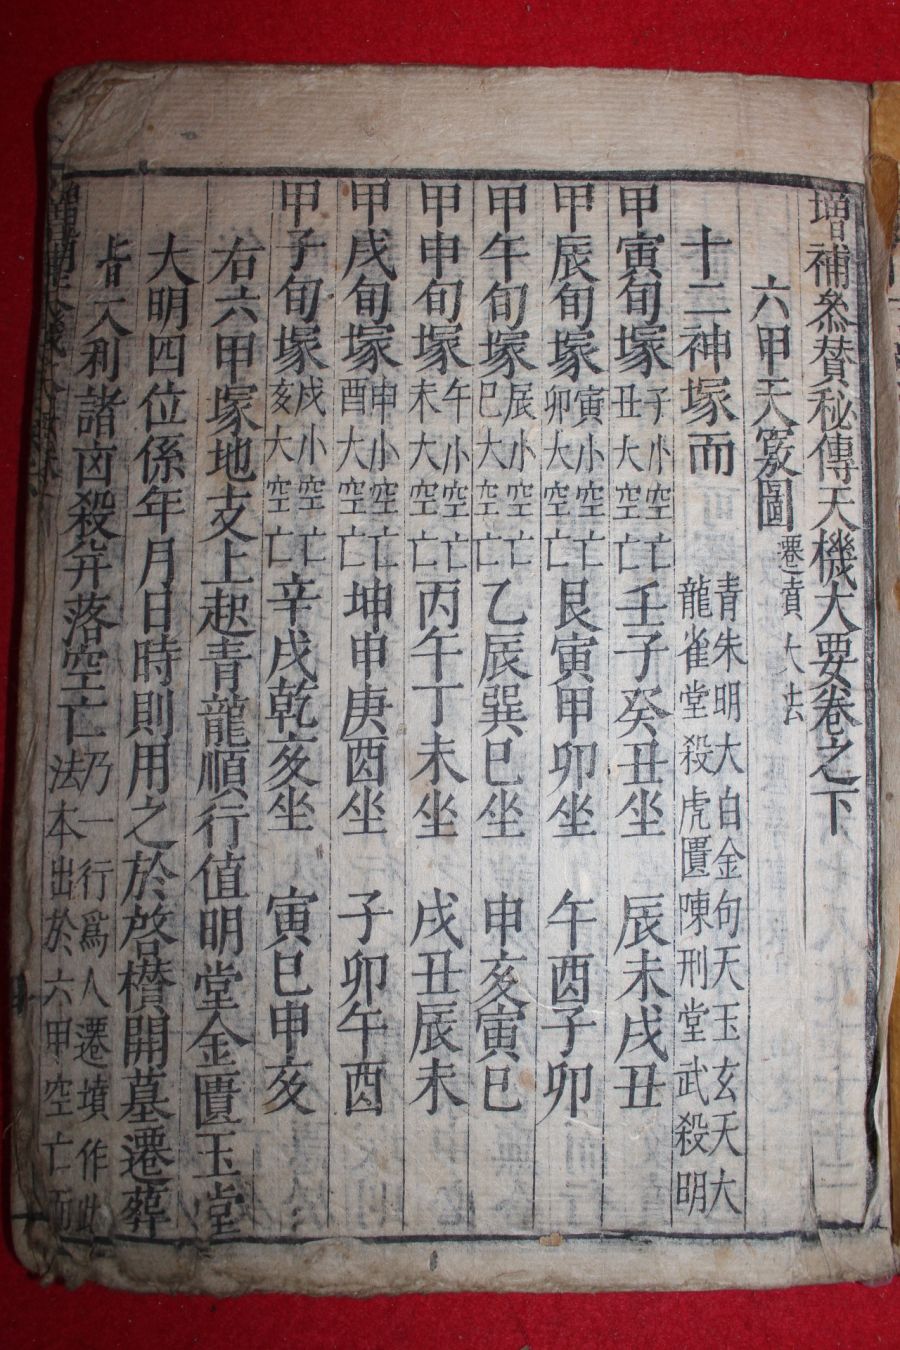 增補參贊秘傳天機大要卷之下
六甲天竅圖 遷墳大法
十二神塚而 青朱明大白金句天玉玄天大 龍雀堂殺虎匱陳刑堂武殺明
甲寅旬塚 子小空亡 丑大空亡 壬子癸丑坐 辰未戌丑
甲辰旬塚 寅小空亡 卯大空亡 艮寅甲卯坐 午酉子卯
甲午旬塚 辰小空亡 巳大空亡 乙辰巽巳坐 申亥寅巳
甲申旬塚 午小空亡 未大空亡 丙午丁未坐 戌丑辰未
甲戌旬塚 申小空亡 酉大空亡 坤申庚酉坐 子卯午酉
甲子旬塚 戌小空亡 亥大空亡 辛戌乾亥坐 寅巳申亥
右六甲塚地支上起青龍順行值明堂金匱玉堂
大明四位係年月日時則用之於啓櫕開墓遷葬
皆大利諸凶殺弁落空亡 乃一行爲人遷墳作此 法本出於六甲空亡而